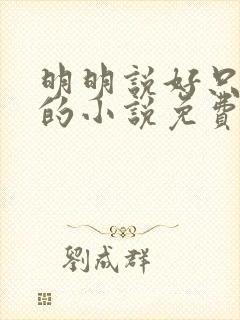 明明說好只
的小說免費
劉成群